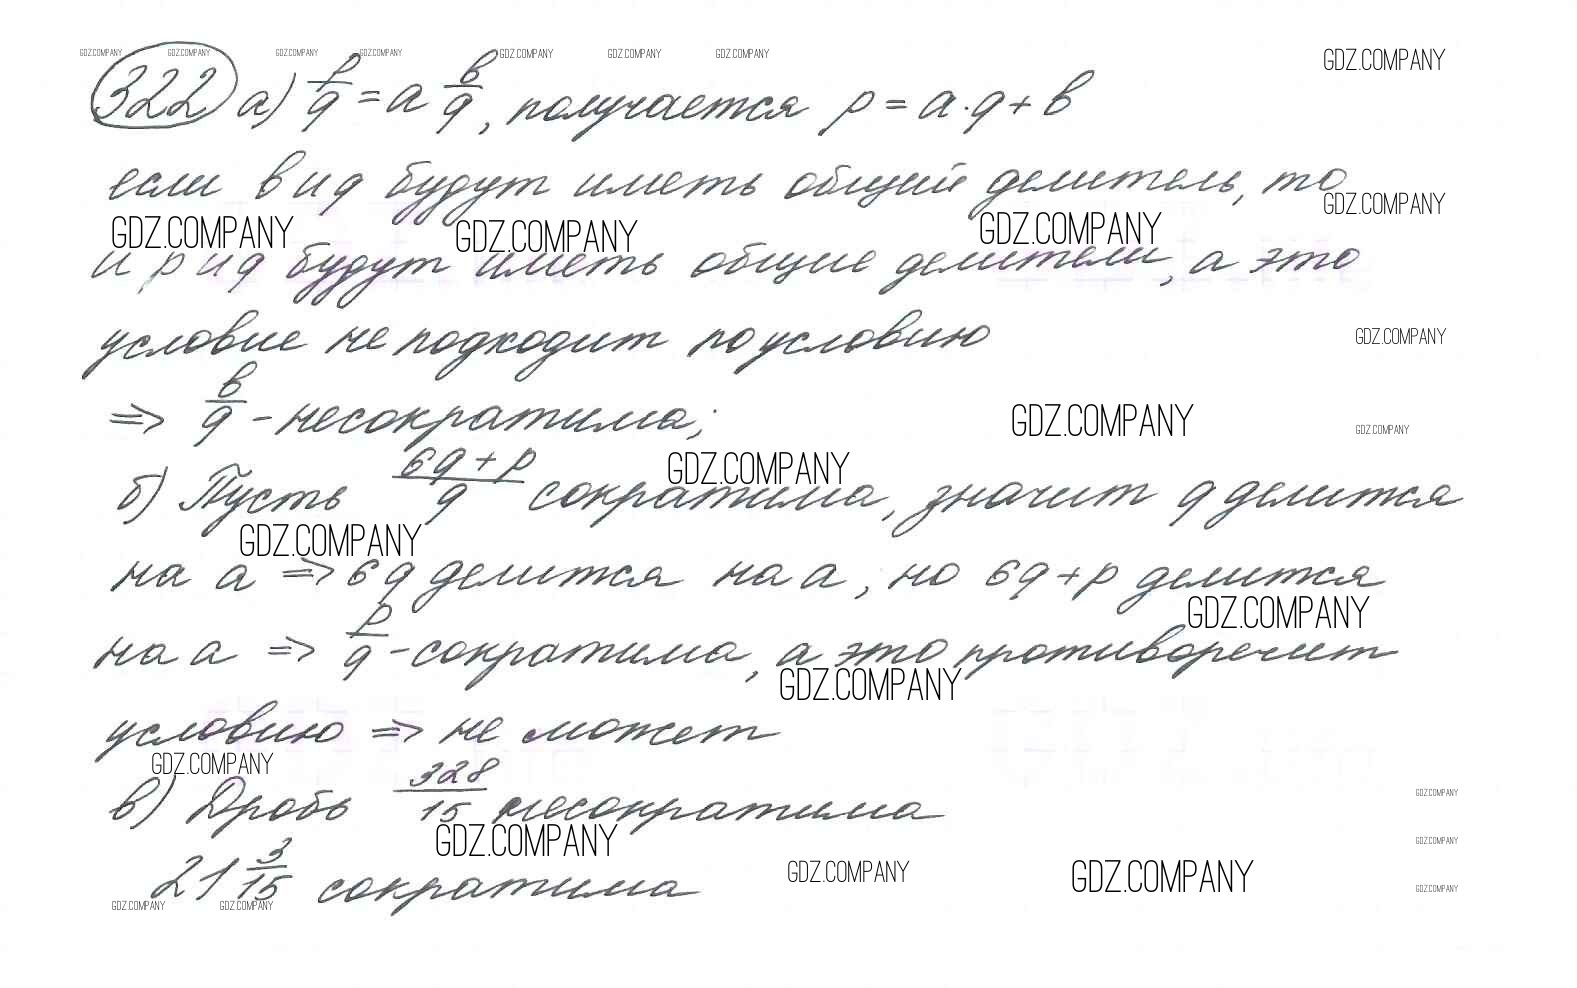 GDZ.COMPANY GDZ.COMPANY GDZ.COMPANY GDZ.COMPANY GDZ.COMPANY GDZ.COMPANY GDZ.COMPANY GDZ.COMPANY
322 а) p/q = a b/q, получается p = a·q + b
если b и q будут иметь общий делитель, то
GDZ.COMPANY
GDZ.COMPANY GDZ.COMPANY GDZ.COMPANY
и p и q будут иметь общие делители, а это
условие не подходит по условию
GDZ.COMPANY
=> b/q - несократима;
GDZ.COMPANY GDZ.COMPANY
GDZ.COMPANY
б) Пусть 6q+p/q сократима, значит q делится
GDZ.COMPANY
на a => 6q делится на a, но 6q+p делится
GDZ.COMPANY
на a => p/q - сократима, а это противоречит
GDZ.COMPANY
условию => не может
GDZ.COMPANY
в) Дробь 328/15 несократима
GDZ.COMPANY
GDZ.COMPANY GDZ.COMPANY
21 3/15 сократима
GDZ.COMPANY GDZ.COMPANY GDZ.COMPANY
GDZ.COMPANY GDZ.COMPANY